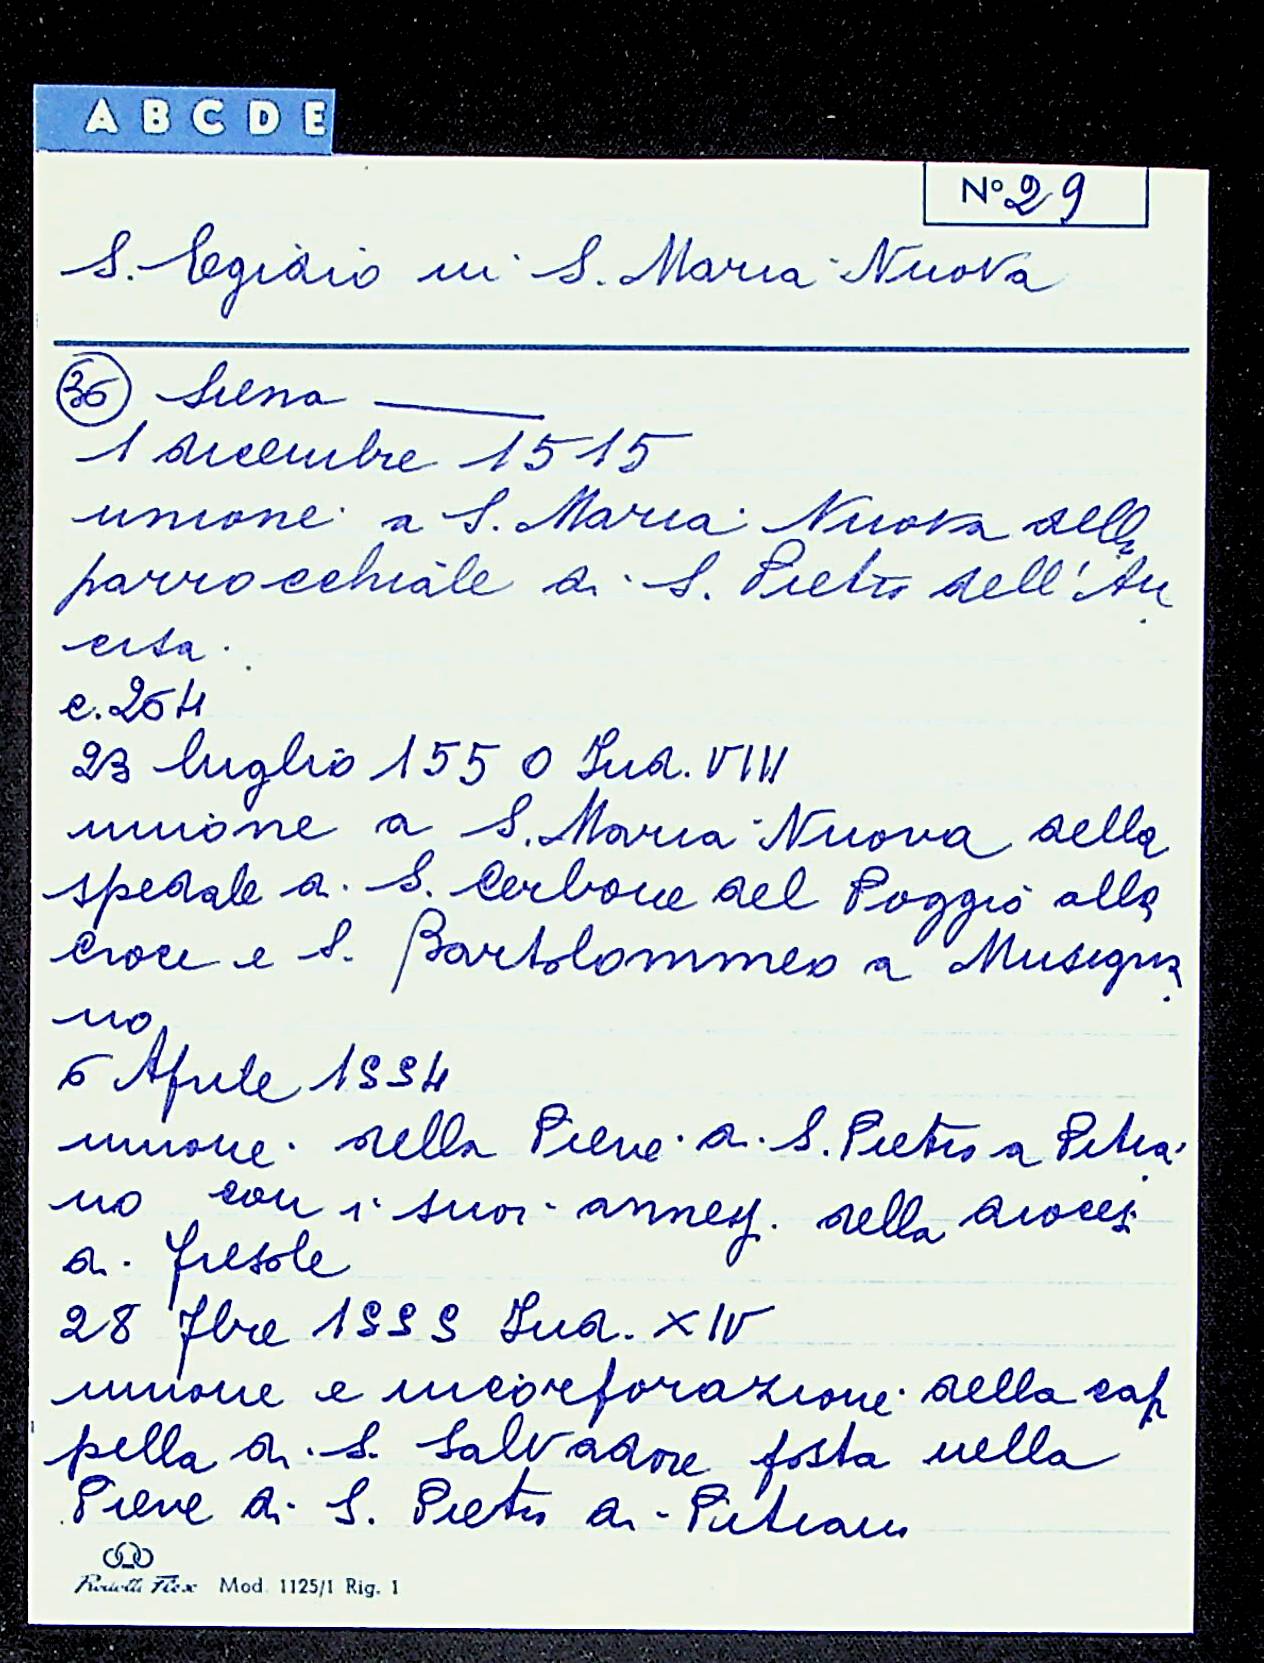 A B C D E
N° 29
S. Egidio in S. Maria Nuova
36 Siena
1 dicembre 1515
unione a S. Maria Nuova della
parrocchiale di S. Pietro dell'An
cisa.
c. 264
23 luglio 1550 Ind. VIII
unione a S. Maria Nuova dello
spedale di S. Cerbone del Poggio alla
croce e S. Bartolommeo a Musigna
no
6 Aprile 1554
unione della Pieve di S. Pietro a Pitia
no con i suoi annessi della diocesi
di Fiesole
28 7bre 1555 Ind. XIV
unione e incorporazione della cap
pella di S. Salvadore posta nella
Pieve di S. Pietro di Pitiano
Flex Mod. 1125/1 Rig. 1